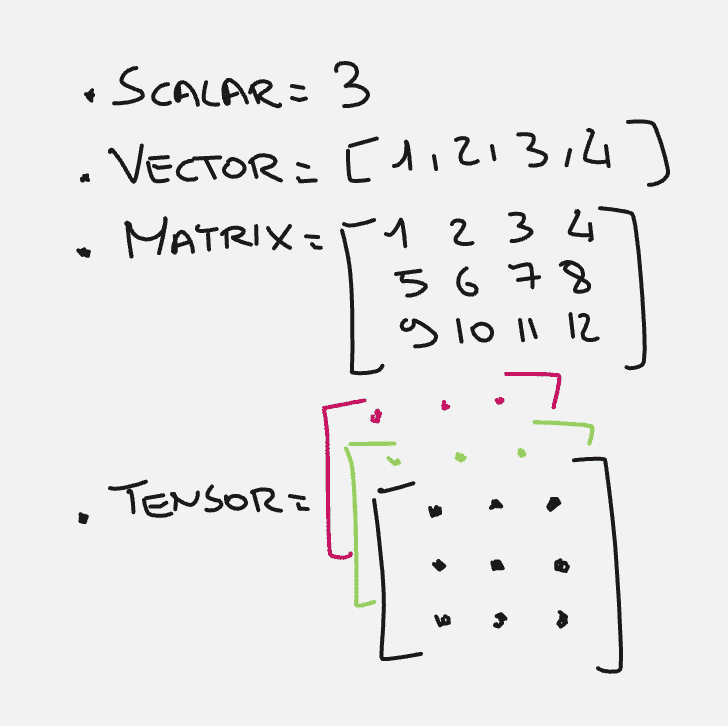 . SCALAR = 3
. VECTOR = [1, 2, 3, 4]
. MATRIX = [1 2 3 4
5 6 7 8
9 10 11 12]
. TENSOR =